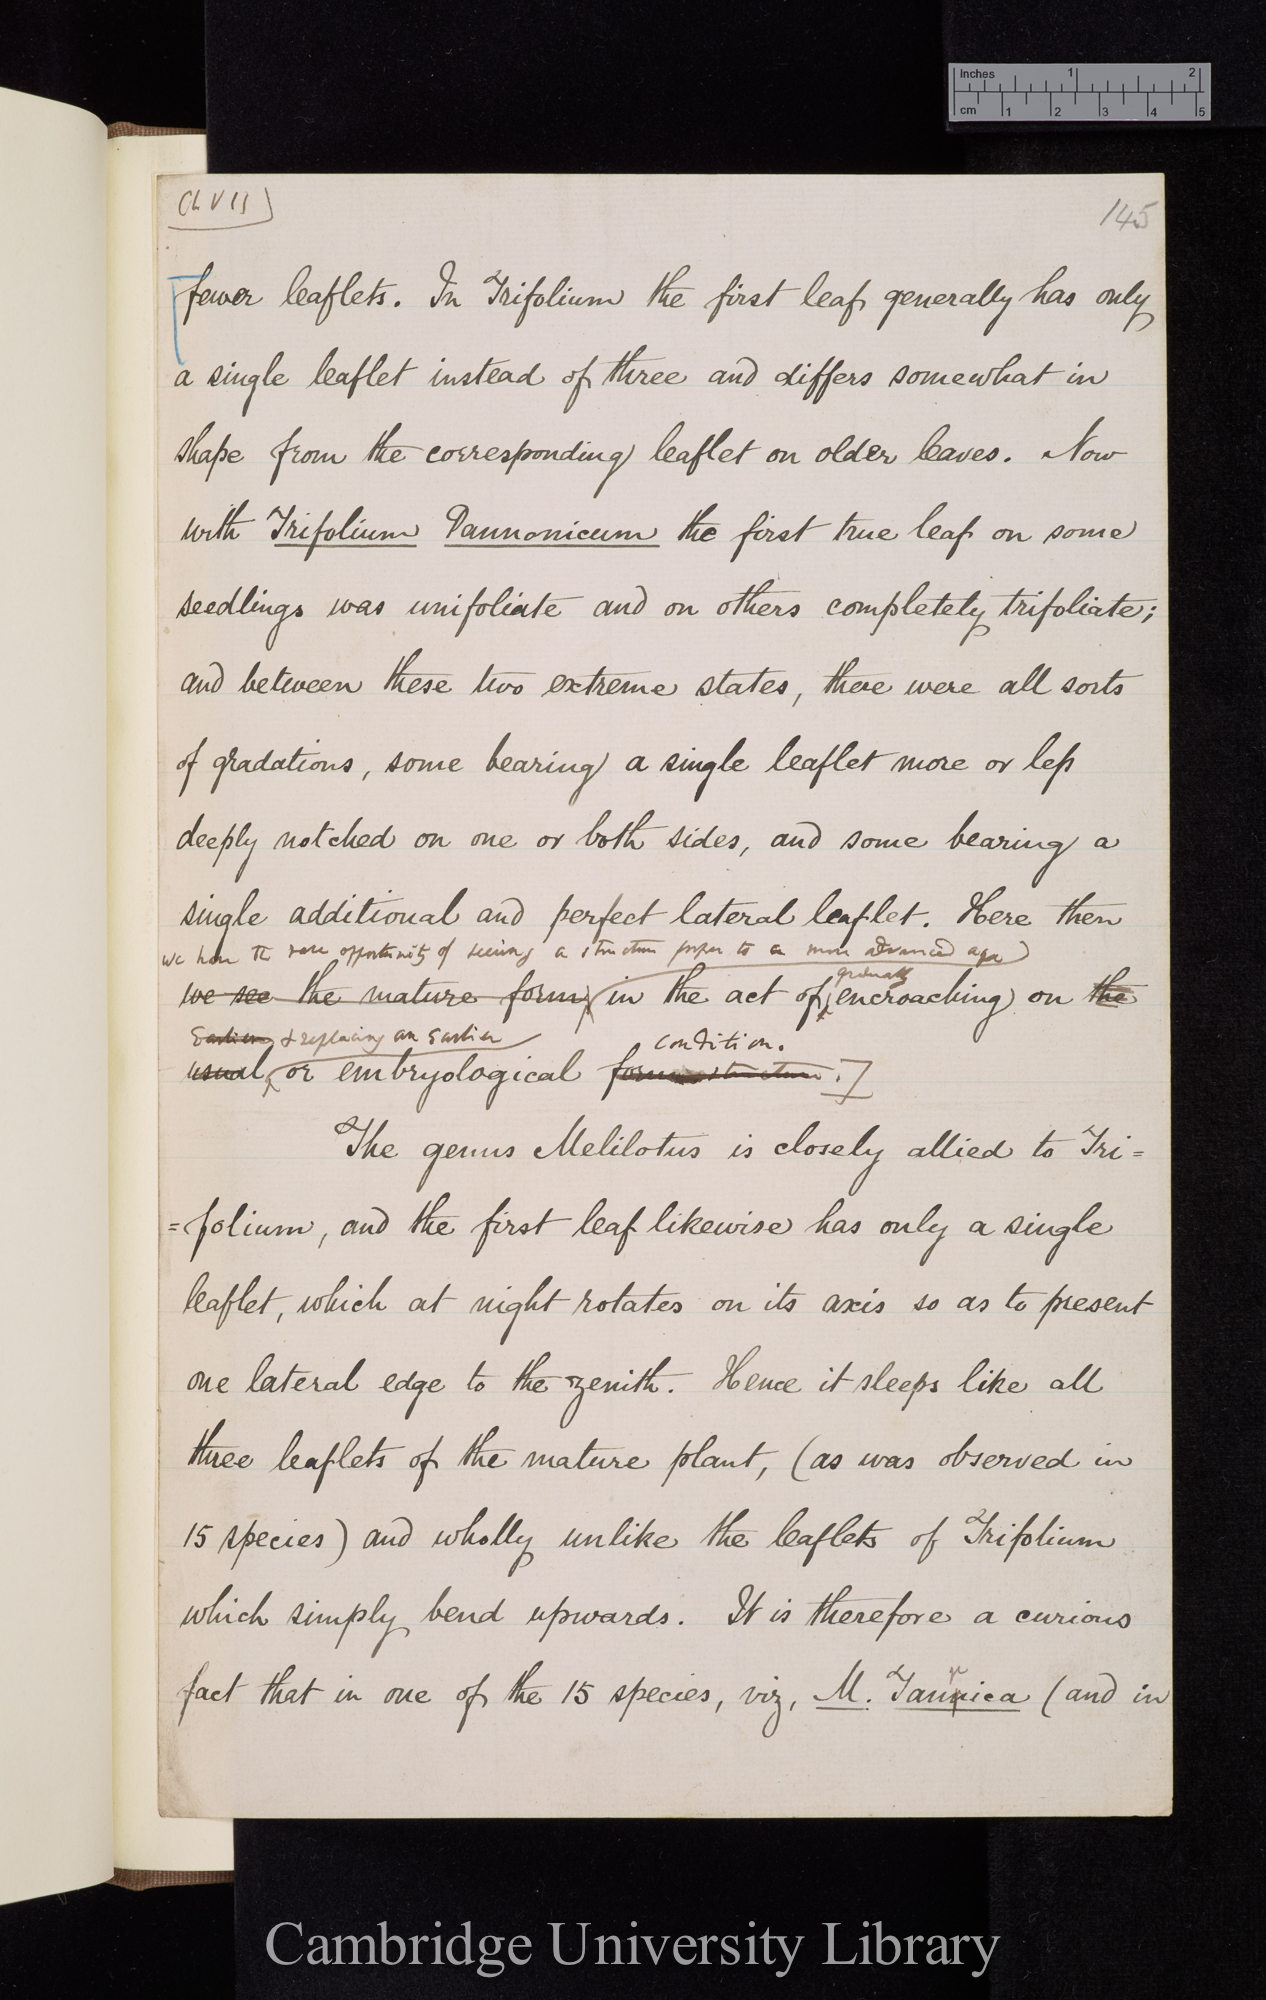 Ch VII]
145
fewer leaflets. In Trifolium the first leaf generally has only
a single leaflet instead of three and differs somewhat in
shape from the corresponding leaflet on older leaves. Now
with Trifolium Pannonicum the first true leaf on some
seedlings was unifoliate and on others completely trifoliate;
and between these two extreme states, there were all sorts
of gradations, some bearing a single leaflet more or less
deeply notched on one or both sides, and some bearing a
single additional and perfect lateral leaflet. Here then
we have the rare opportunity of seeing a structure proper to a more advanced age
gradually
we see the mature form in the act of encroaching on the
Earlier & replacing an earlier condition.
usual or embryological form structure.]
The genus Melilotus is closely allied to Tri=
=folium, and the first leaf likewise has only a single
leaflet, which at night rotates on its axis so as to present
one lateral edge to the zenith. Hence it sleeps like all
three leaflets of the mature plant, (as was observed in
15 species) and wholly unlike the leaflets of Trifolium
which simply bend upwards. It is therefore a curious
r
fact that in one of the 15 species, viz, M. Taunica (and in
inches 1 2
cm 1 2 3 4 5
Cambridge University Library